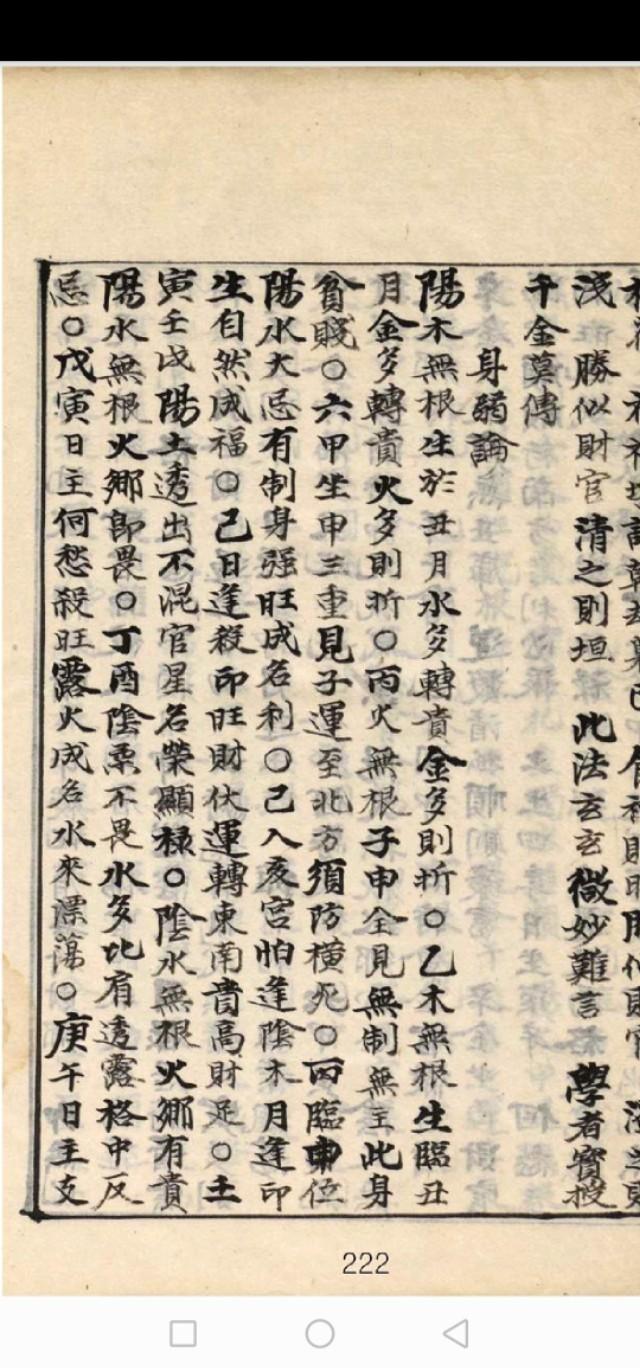 浅勝似財官清之則垣此法玄玄微妙難言學者寶授
千金莫傳
身弱論
陽木無根生於丑月水多轉貴金多則折○乙木無根生臨丑
月金多轉貴火多則折○丙火無根子申全見無制無主此身
貧賤○六甲坐申三重見子運至北方須防橫死○丙臨申位
陽水大忌有制身强旺成名利○己入亥宮怕逢陰木月逢印
生自然成福○己日逢殺印旺財伏運轉東南貴高財足○土
寅壬戌陽土透出不混官星名榮顯禄○陰水無根火鄉有貴
陽水無根火鄉即畏○丁酉陰柔不畏水多比肩透露格中反
忌○戊寅日主何愁殺旺露火成名水來漂蕩○庚午日主支
222